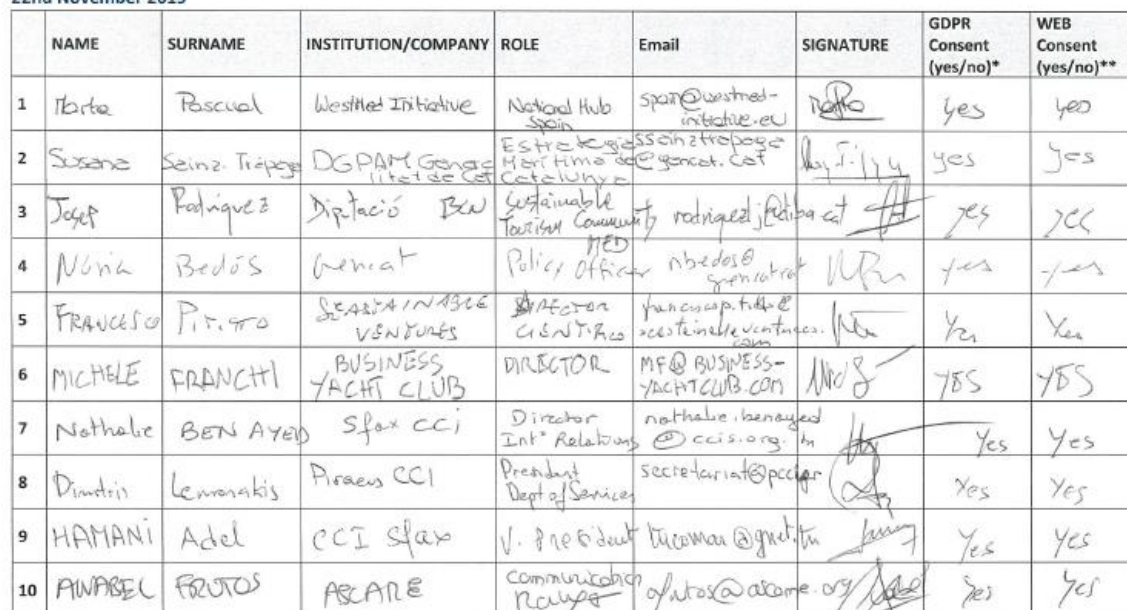 22nd November 2019
NAME SURNAME INSTITUTION/COMPANY ROLE Email SIGNATURE GDPR Consent (yes/no)* WEB Consent (yes/no)**
1 Marta Pascual WestMed Initiative National Hub Spain spain@westmed-initiative.eu yes yes
2 Susana Sainz-Trápaga DGPAM Generalitat de Cat Estrategia Marítima de Catalunya ssainztrapaga@gencat.cat yes yes
3 Josep Rodriguez Diptació BCN Sustainable Tourism Community MED rodriguezlj@diba.cat yes yes
4 Núria Bedós Gencat Policy Officer nbedos@gencat.cat yes yes
5 FRANCESCO VENTURES Yes Yes
6 MICHELE FRANCHI BUSINESS YACHT CLUB DIRECTOR MF@BUSINESS-YACHTCLUB.COM YES YES
7 Nathalie BEN AYED Sfax CCi Director Int° Relations nathalie.benayed@ccis.org.tn Yes Yes
8 Dimitris Lemonakis Piraeus CCI President Dept of Services secretariat@pcci.gr Yes Yes
9 HAMANi Adel CCI Sfax V. President tucomar@gnet.tn Yes Yes
10 ANABEL FRUTOS communication afrutos@ascame.org Yes Yes